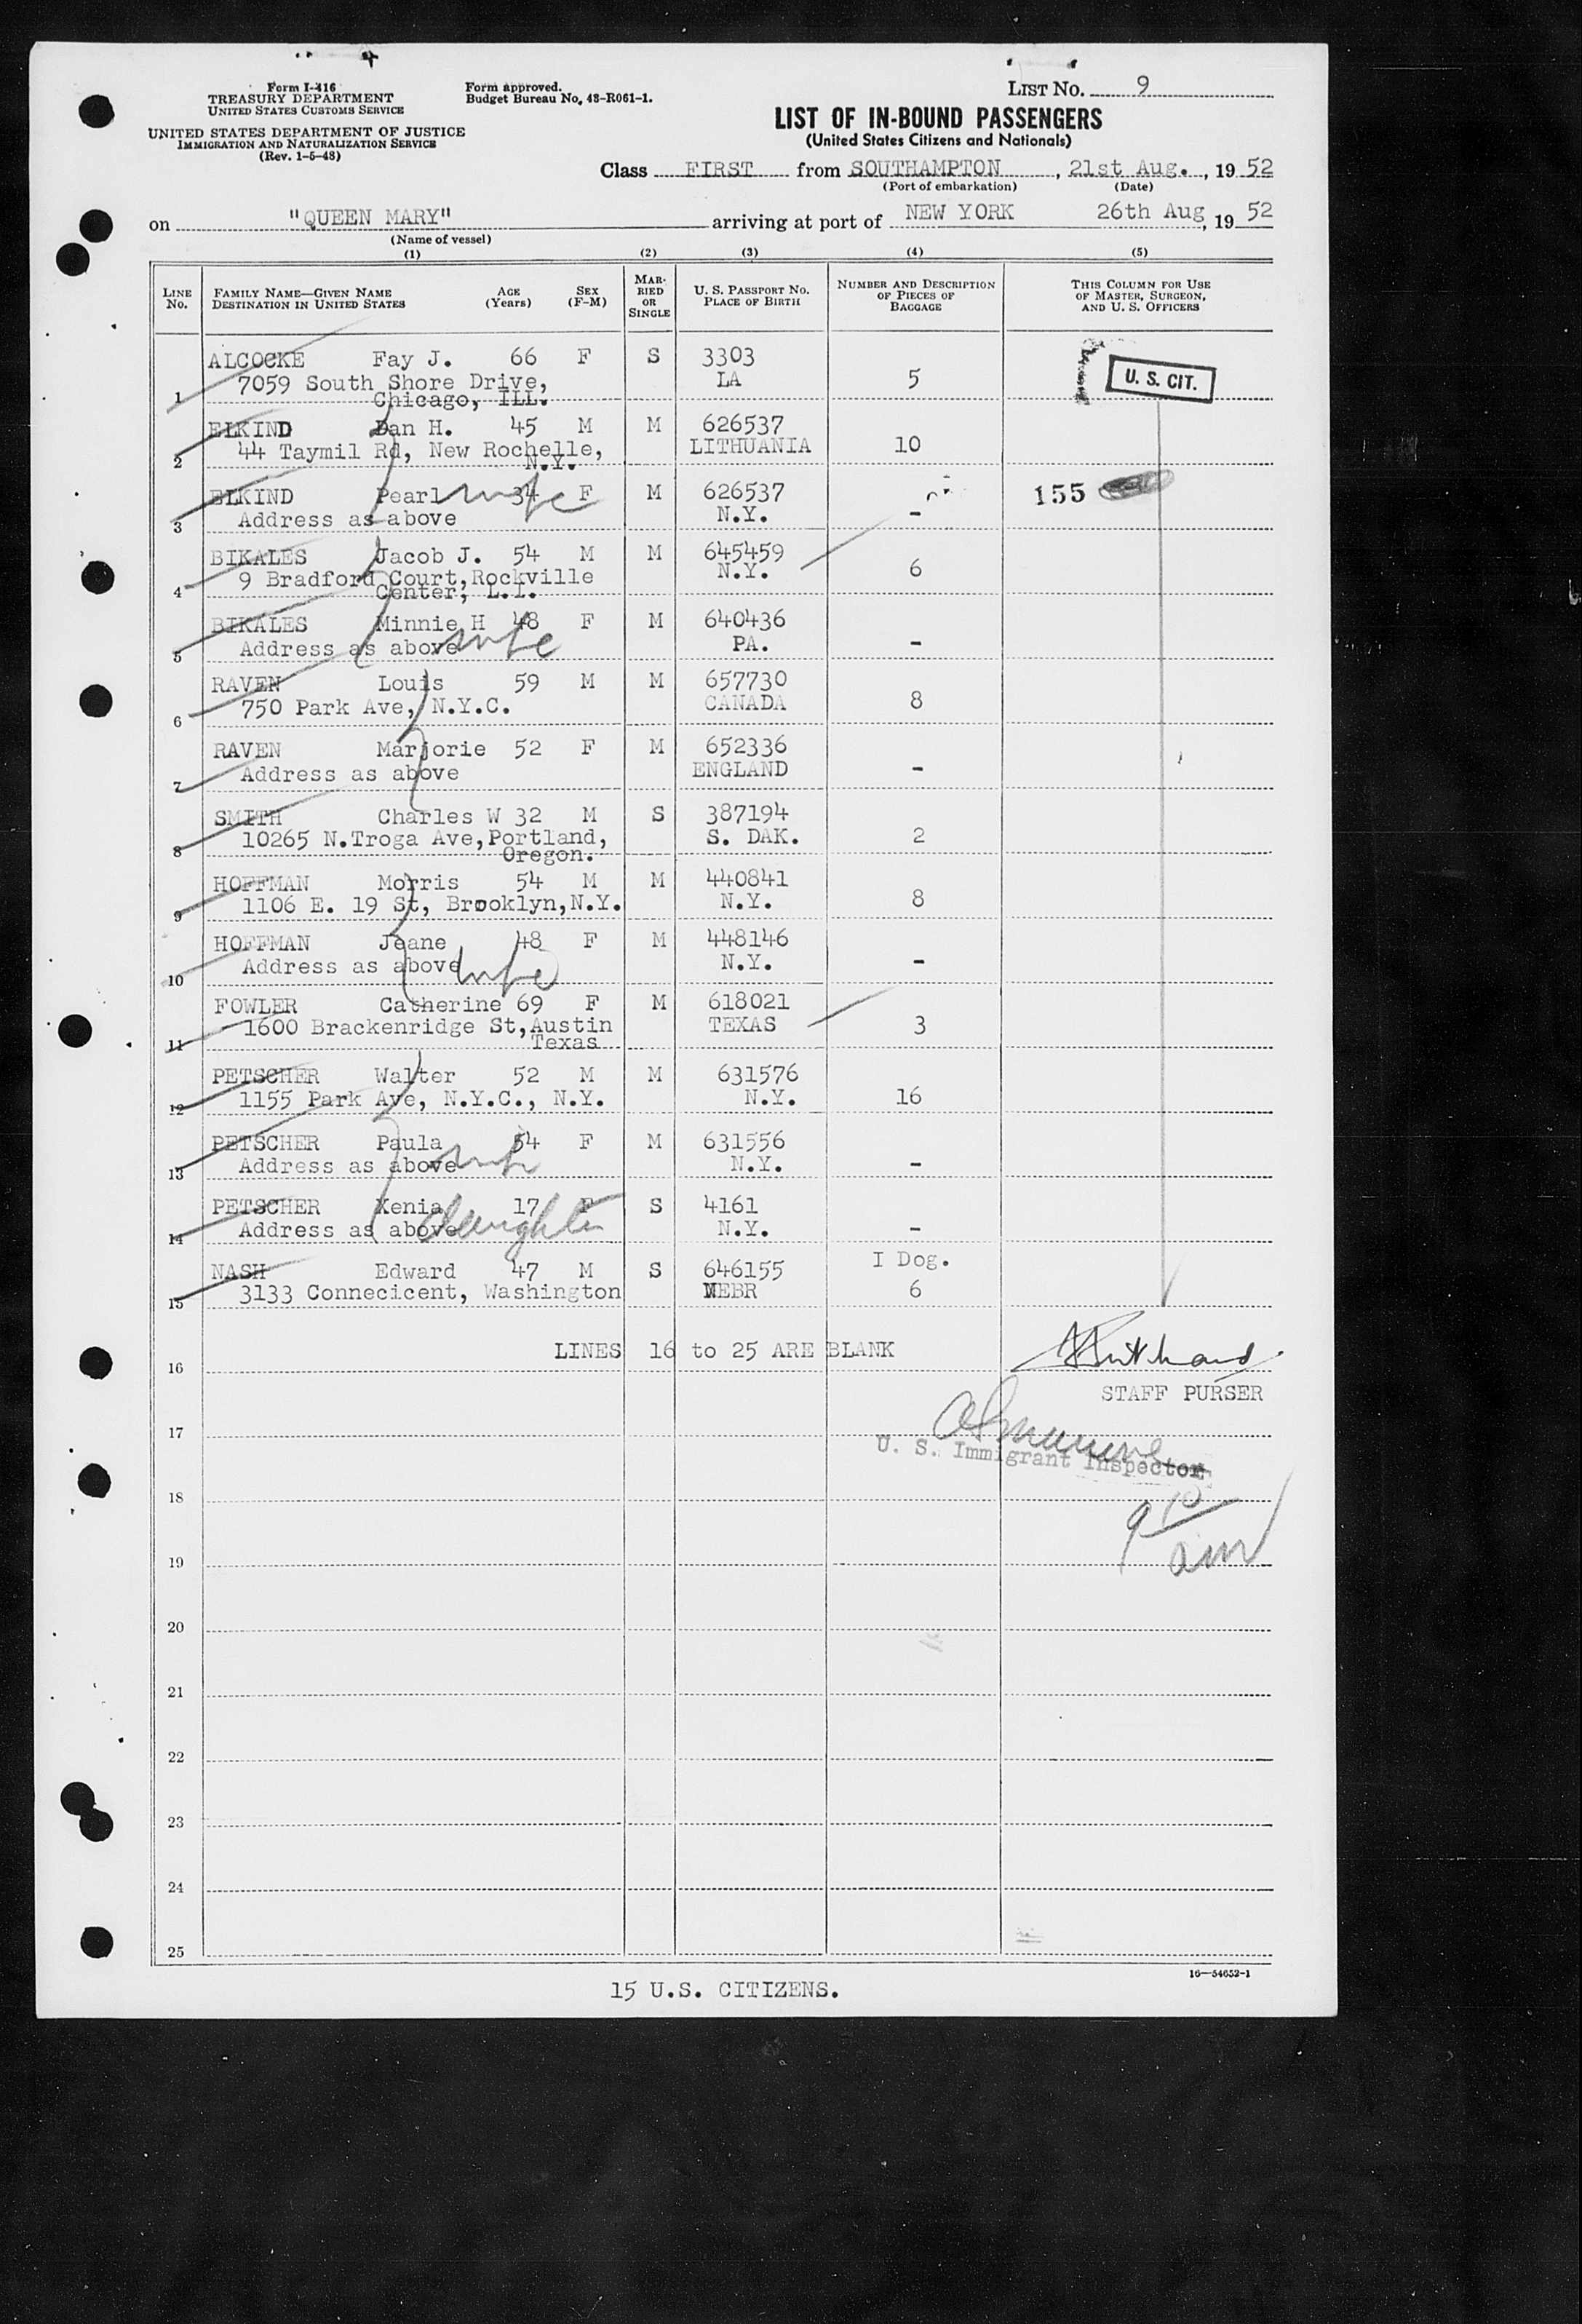 Form I-416
TREASURY DEPARTMENT
UNITED STATES CUSTOMS SERVICE
UNITED STATES DEPARTMENT OF JUSTICE
IMMIGRATION AND NATURALIZATION SERVICE
(Rev. 1-5-48)
Form approved.
Budget Bureau No. 43-R061-1.
LIST No. 9
LIST OF IN-BOUND PASSENGERS
(United States Citizens and Nationals)
Class FIRST from SOUTHAMPTON, 21st Aug., 1952
(Port of embarkation) (Date)
on "QUEEN MARY" arriving at port of NEW YORK 26th Aug, 1952
(Name of vessel)
(1) (2) (3) (4) (5)
LINE No. FAMILY NAME—GIVEN NAME DESTINATION IN UNITED STATES AGE (Years) SEX (F-M) MARRIED OR SINGLE U. S. PASSPORT No. PLACE OF BIRTH NUMBER AND DESCRIPTION OF PIECES OF BAGGAGE THIS COLUMN FOR USE OF MASTER, SURGEON, AND U. S. OFFICERS
ALCOCKE Fay J. 66 F S 3303
1 7059 South Shore Drive, LA 5 U. S. CIT.
Chicago, ILL.
ELKIND Dan H. 45 M M 626537
2 44 Taymil Rd, New Rochelle, LITHUANIA 10
N.Y.
ELKIND Pearl wife 34 F M 626537 155
3 Address as above N.Y. -
BIKALES Jacob J. 54 M M 645459
4 9 Bradford Court, Rockville N.Y. 6
Center, L.I.
BIKALES Minnie H 48 F M 640436
5 Address as above wife PA. -
RAVEN Louis 59 M M 657730
6 750 Park Ave, N.Y.C. CANADA 8
RAVEN Marjorie 52 F M 652336
7 Address as above ENGLAND -
SMITH Charles W 32 M S 387194
8 10265 N.Troga Ave,Portland, S. DAK. 2
Oregon.
HOFFMAN Morris 54 M M 440841
9 1106 E. 19 St, Brooklyn,N.Y. N.Y. 8
HOFFMAN Jeane 48 F M 448146
10 Address as above wife N.Y. -
FOWLER Catherine 69 F M 618021
11 1600 Brackenridge St,Austin TEXAS 3
Texas
PETSCHER Walter 52 M M 631576
12 1155 Park Ave, N.Y.C., N.Y. N.Y. 16
PETSCHER Paula 54 F M 631556
13 Address as above wife N.Y. -
PETSCHER Xenia 17 F S 4161
14 Address as above daughter N.Y. -
NASH Edward 47 M S 646155 I Dog.
15 3133 Connecicent, Washington NEBR 6
16 LINES 16 to 25 ARE BLANK
STAFF PURSER
17
U. S. Immigrant Inspector
18
9 10
am
19
20
21
22
23
24
25
16—54652-1
15 U.S. CITIZENS.